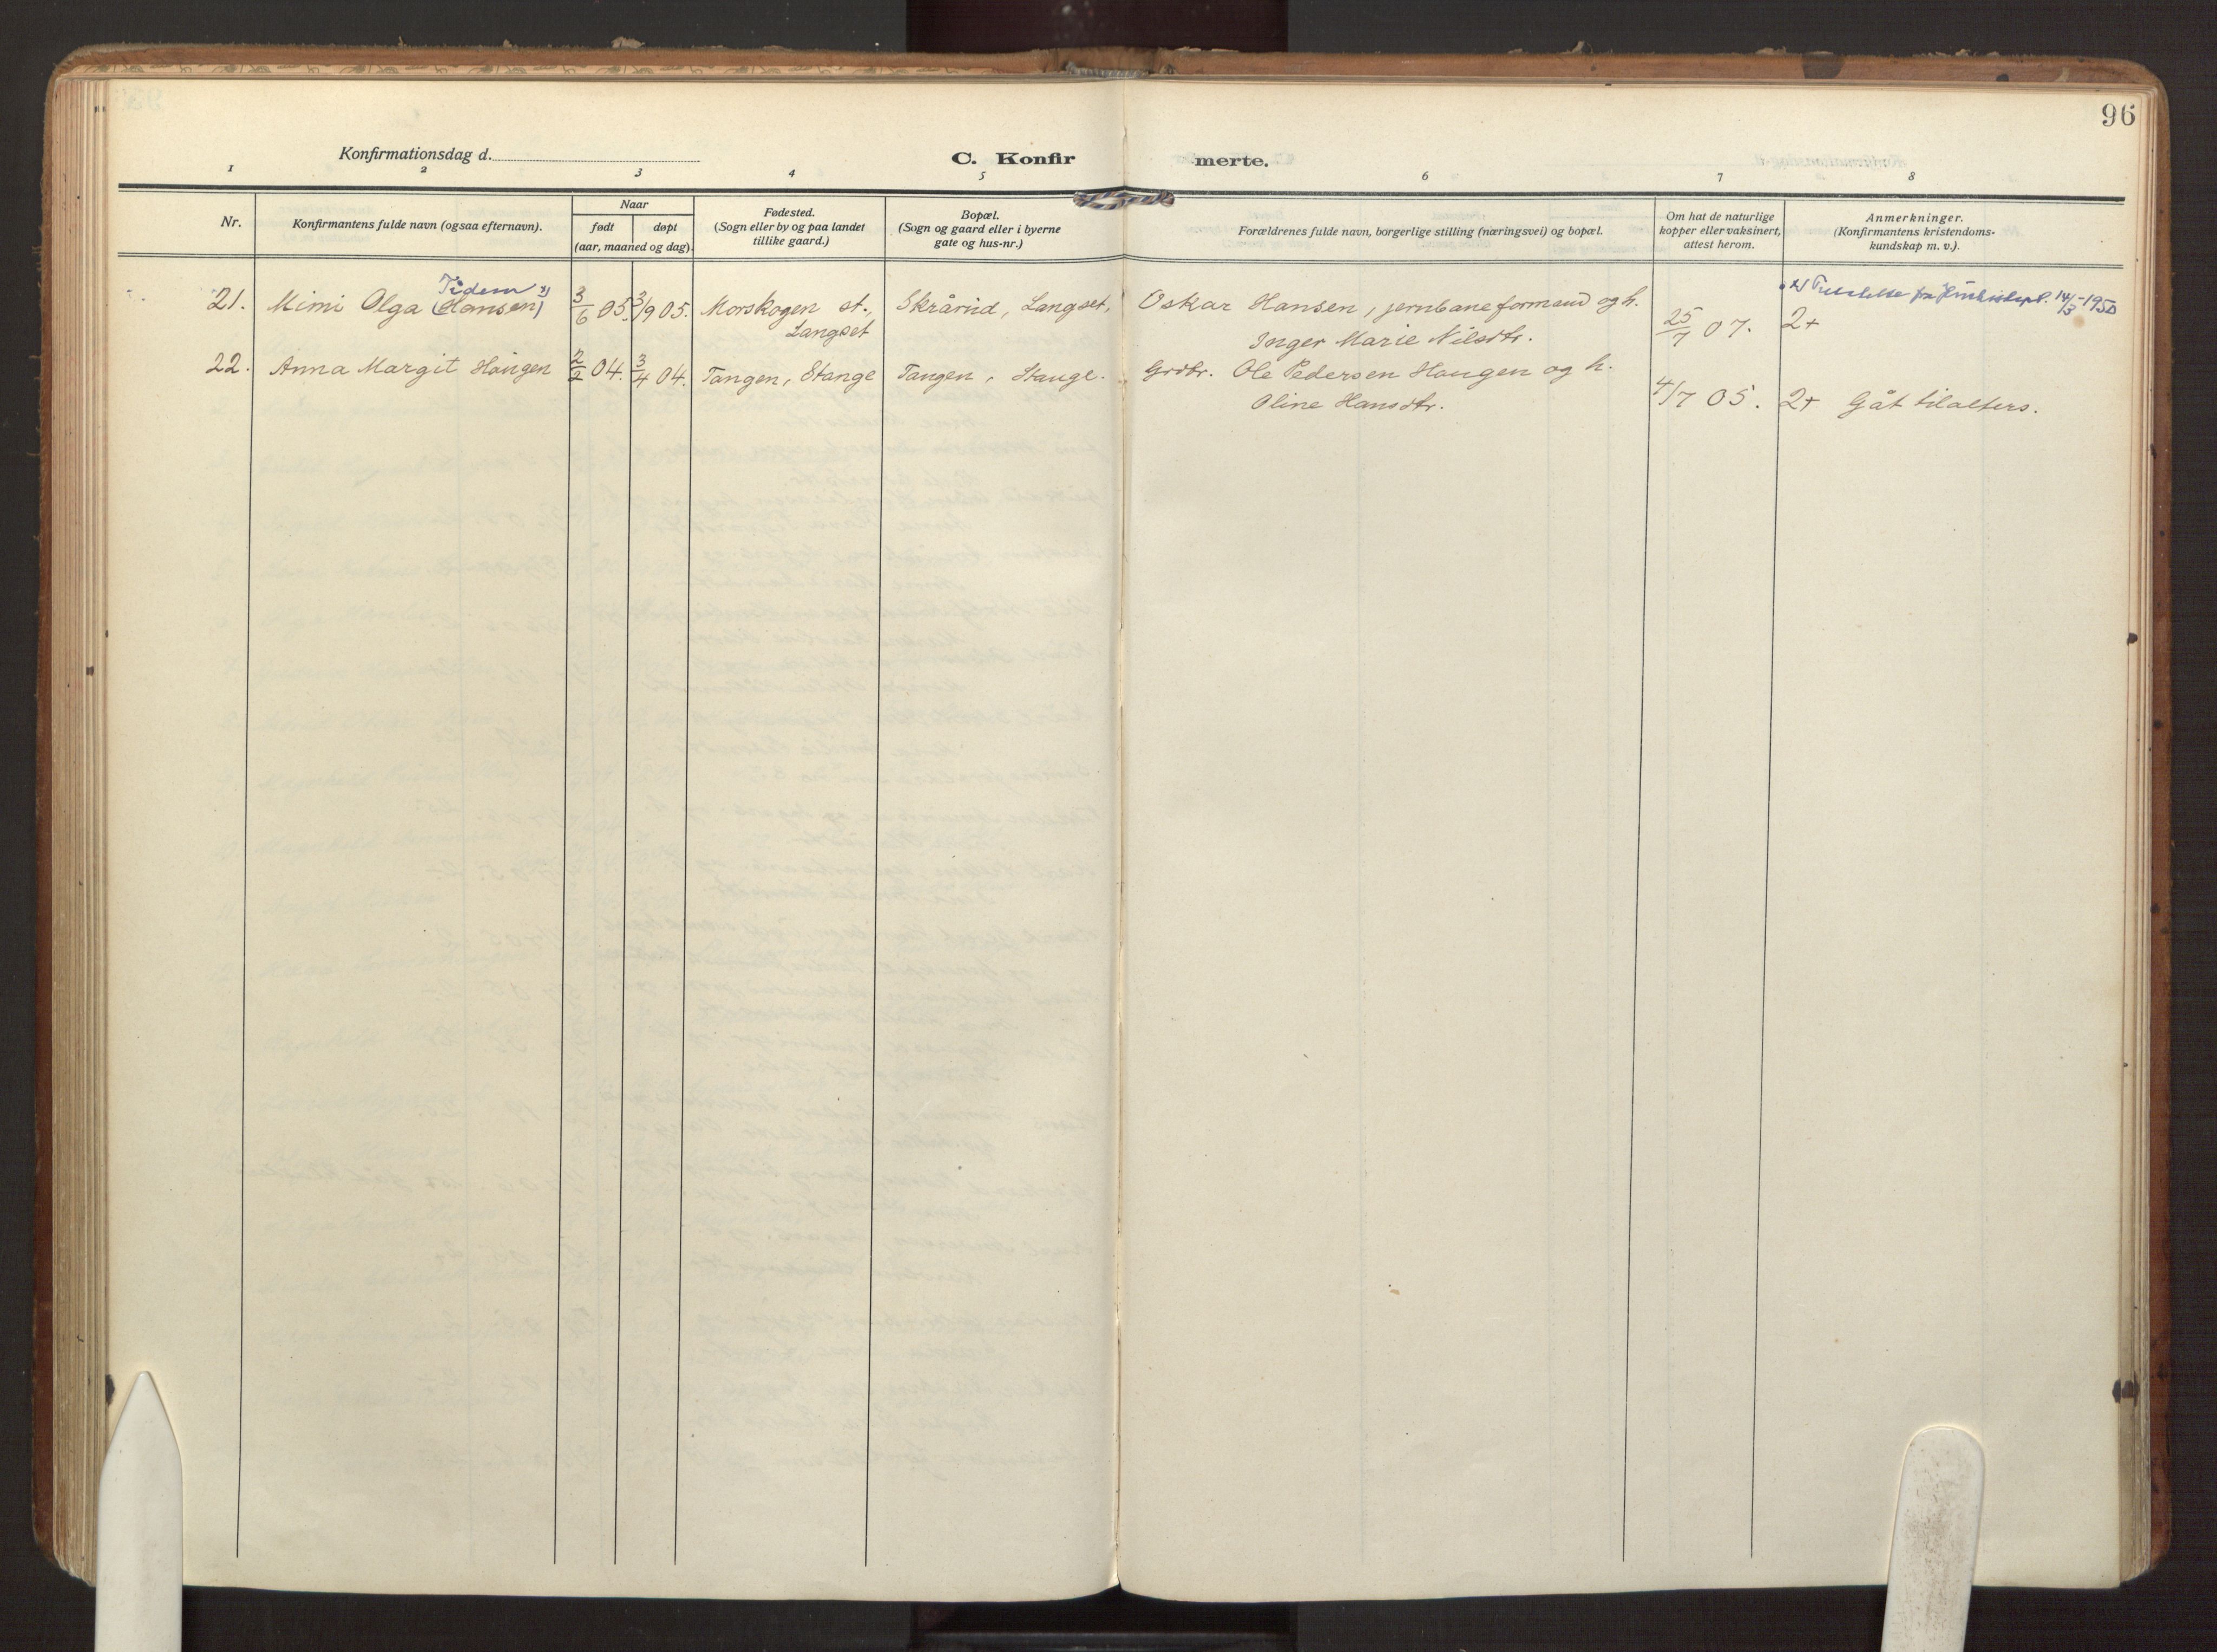 96
Konfirmationsdag d.
C. Konfir merte.
1 2 3 4 5 6 7 8
Nr.
Konfirmantens fulde navn (ogsaa efternavn).
Naar
født døpt
(aar, maaned og dag).
Fødested.
(Sogn eller by og paa landet
tillike gaard.)
Bopæl.
(Sogn og gaard eller i byerne
gate og hus-nr.)
Forældrenes fulde navn, borgerlige stilling (næringsvei) og bopæl.
Om hat de naturlige
kopper eller vaksinert,
attest herom.
Anmerkninger.
(Konfirmantens kristendoms-
kundskap m. v.).
Tidem x)
x) fra 14/3-1950
21. Mimi Olga (Hansen) 3/6 05. 3/9 05. Morskogen st., Skrårud, Langset, Oskar Hansen, jernbaneformand og h.
Langset Inger Marie Nilsdtr. 25/7 07. 2+
22. Anna Margit Haugen 2/2 04. 3/4 04. Tangen, Stange Tangen, Stange. Grdbr. Ole Pedersen Haugen og h.
Oline Hansdtr. 4/7 05. 2+ Gåt tilalters.